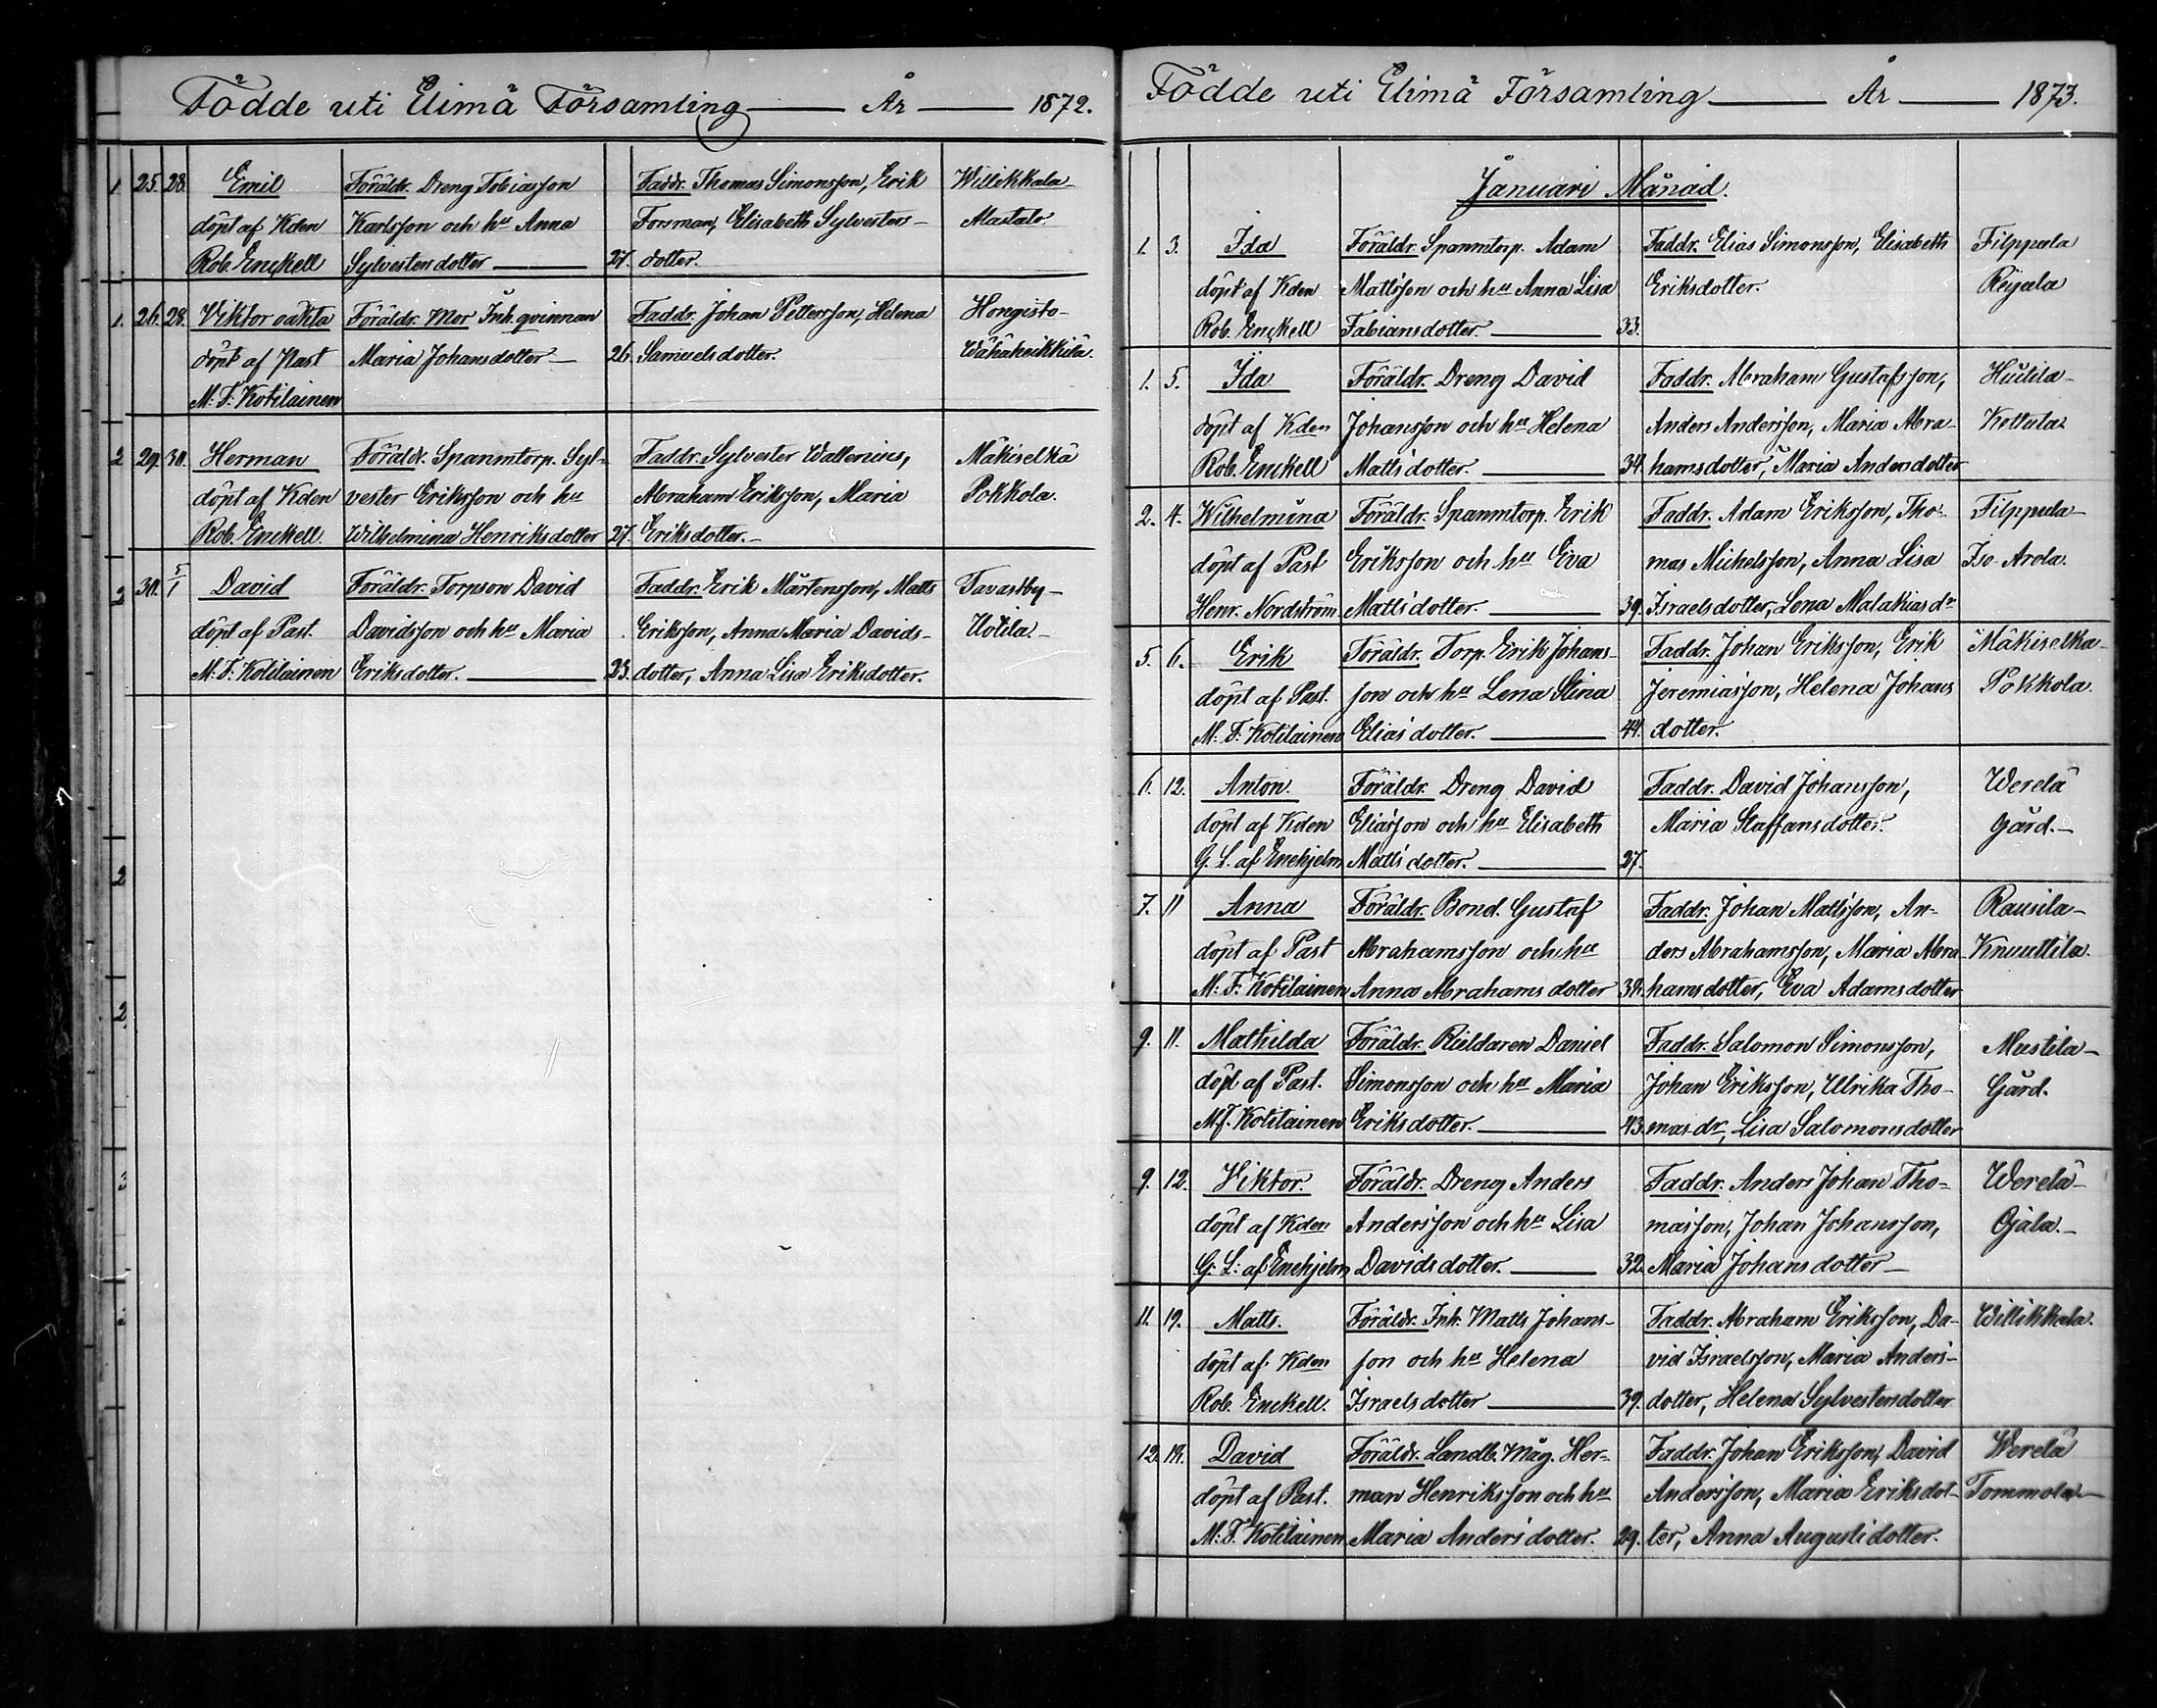 Födde uti Elimä Församling — År — 1872.
1 25. 28. Emil Föräldr. Dreng Tobiasson Faddr. Thomas Simonsson, Erik Willikkala-
döpt af Kden Karlsson och hu Anna Forsman, Elisabeth Sylvesters- Mastalo.
Rob. Enckell Sylvesters dotter — 27. dotter.
1. 26. 28. Viktor oäkta Föräldr. Mor Inh. qvinnan Faddr. Johan Pettersson, Helena Hongisto-
döpt af Past Maria Johansdotter — 26. Samuelsdotter. Wähäheikkilä.
M. F. Kotilainen
2 29. 30. Herman Föräldr. Spanmtorp. Syl- Faddr. Sylvester Wallenius, Mäkiselkä
döpt af Kden vester Eriksson och hu Abraham Eriksson, Maria Pokkola.
Rob. Enckell. Wilhelmina Henriksdotter 27. Eriksdotter.-
2 30. 5/1 David Föräldr. Torpson David Faddr. Erik Mårtensson, Matts Tavastby-
döpt af Past. Davidsson och hu Maria Eriksson, Anna Maria Davids- Uotila.-
M. F. Kotilainen Eriksdotter. — 23. dotter, Anna Lisa Eriksdotter.
2
2
Födde uti Elimä Församling — År — 1873.
Januari Månad.
1. 3. Ida Föräldr. Spanmtorp. Adam Faddr. Elias Simonsson, Elisabeth Filppula
döpt af Kden Mattsson och hu Anna Lisa Eriksdotter. Rejala
Rob. Enckell Fabiansdotter — 33.
1. 5. Ida Föräldr. Dreng David Faddr. Abraham Gustafsson, Huilila-
döpt af Kden Johansson och hu Helena Anders Andersson, Maria Abra- Kettula
Rob. Enckell Matts'dotter. — 34. hamsdotter, Maria Andersdotter
2. 4. Wilhelmina Föräldr. Spanmtorp. Erik Faddr. Adam Eriksson, Tho- Filppula-
döpt af Past Eriksson och hu Eva mas Michelsson, Anna Lisa Iso-Arola.
Henr. Nordström Matts'dotter. — 39. Israelsdotter, Lena Malakias dr
5. 6. Erik Föräldr. Torp. Erik Johans- Faddr. Johan Eriksson, Erik Mäkiselkä-
döpt af Past. son och hu Lena Stina Jeremiasson, Helena Johans Pokkola.
M. F. Kotilainen Elias'dotter. — 44. dotter.
6. 12. Anton. Föräldr. Dreng David Faddr. David Johansson, Werelä
döpt af Kden Eliasson och hu Elisabeth Maria Staffansdotter. gård.-
G. L. af Enehjelm Matts'dotter. — 27.
7. 11 Anna Föräldr. Bond. Gustaf Faddr. Johan Mattsson, An- Rausila-
döpt af Past Abrahamsson och hu ders Abrahamsson, Maria Abra- Knuuttila.
M. F. Kotilainen Anna Abrahamsdotter 34. hamsdotter, Eva Adamsdotter
9. 11. Mathilda Föräldr. Rieldaren Daniel Faddr. Salomon Simonsson, Mustila-
döpt af Past. Simonsson och hu Maria Johan Eriksson, Ulrika Tho- Gård.
M. F. Kotilainen Eriksdotter. — 43. mas dr, Lisa Salomonsdotter
9. 12. Viktor. Föräldr. Dreng Anders Faddr. Anders Johan Tho- Werelä-
döpt af Kden Andersson och hu Lisa masson, Johan Johansson, Ojala.-
G. L. af Enehjelm Davidsdotter. — 32. Maria Johansdotter-
11. 19. Matts. Föräldr. Inh. Matts Johans- Faddr. Abraham Eriksson, Da- Willikkala.
döpt af Kden son och hu Helena vid Israelsson, Maria Anders-
Rob. Enckell. Israelsdotter — 39. dotter, Helena Sylvestersdotter
12. 18. David Föräldr. Landb. Måg. Her- Faddr. Johan Eriksson, David Werelä
döpt af Past. man Henriksson och hu Andersson, Maria Eriksdot- Tommola-
M. F. Kotilainen Maria Anders'dotter. 29. ter, Anna Augustidotter.